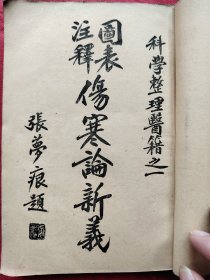 科學整理醫籍之一
圖表
註釋
傷寒論新義
張夢痕題